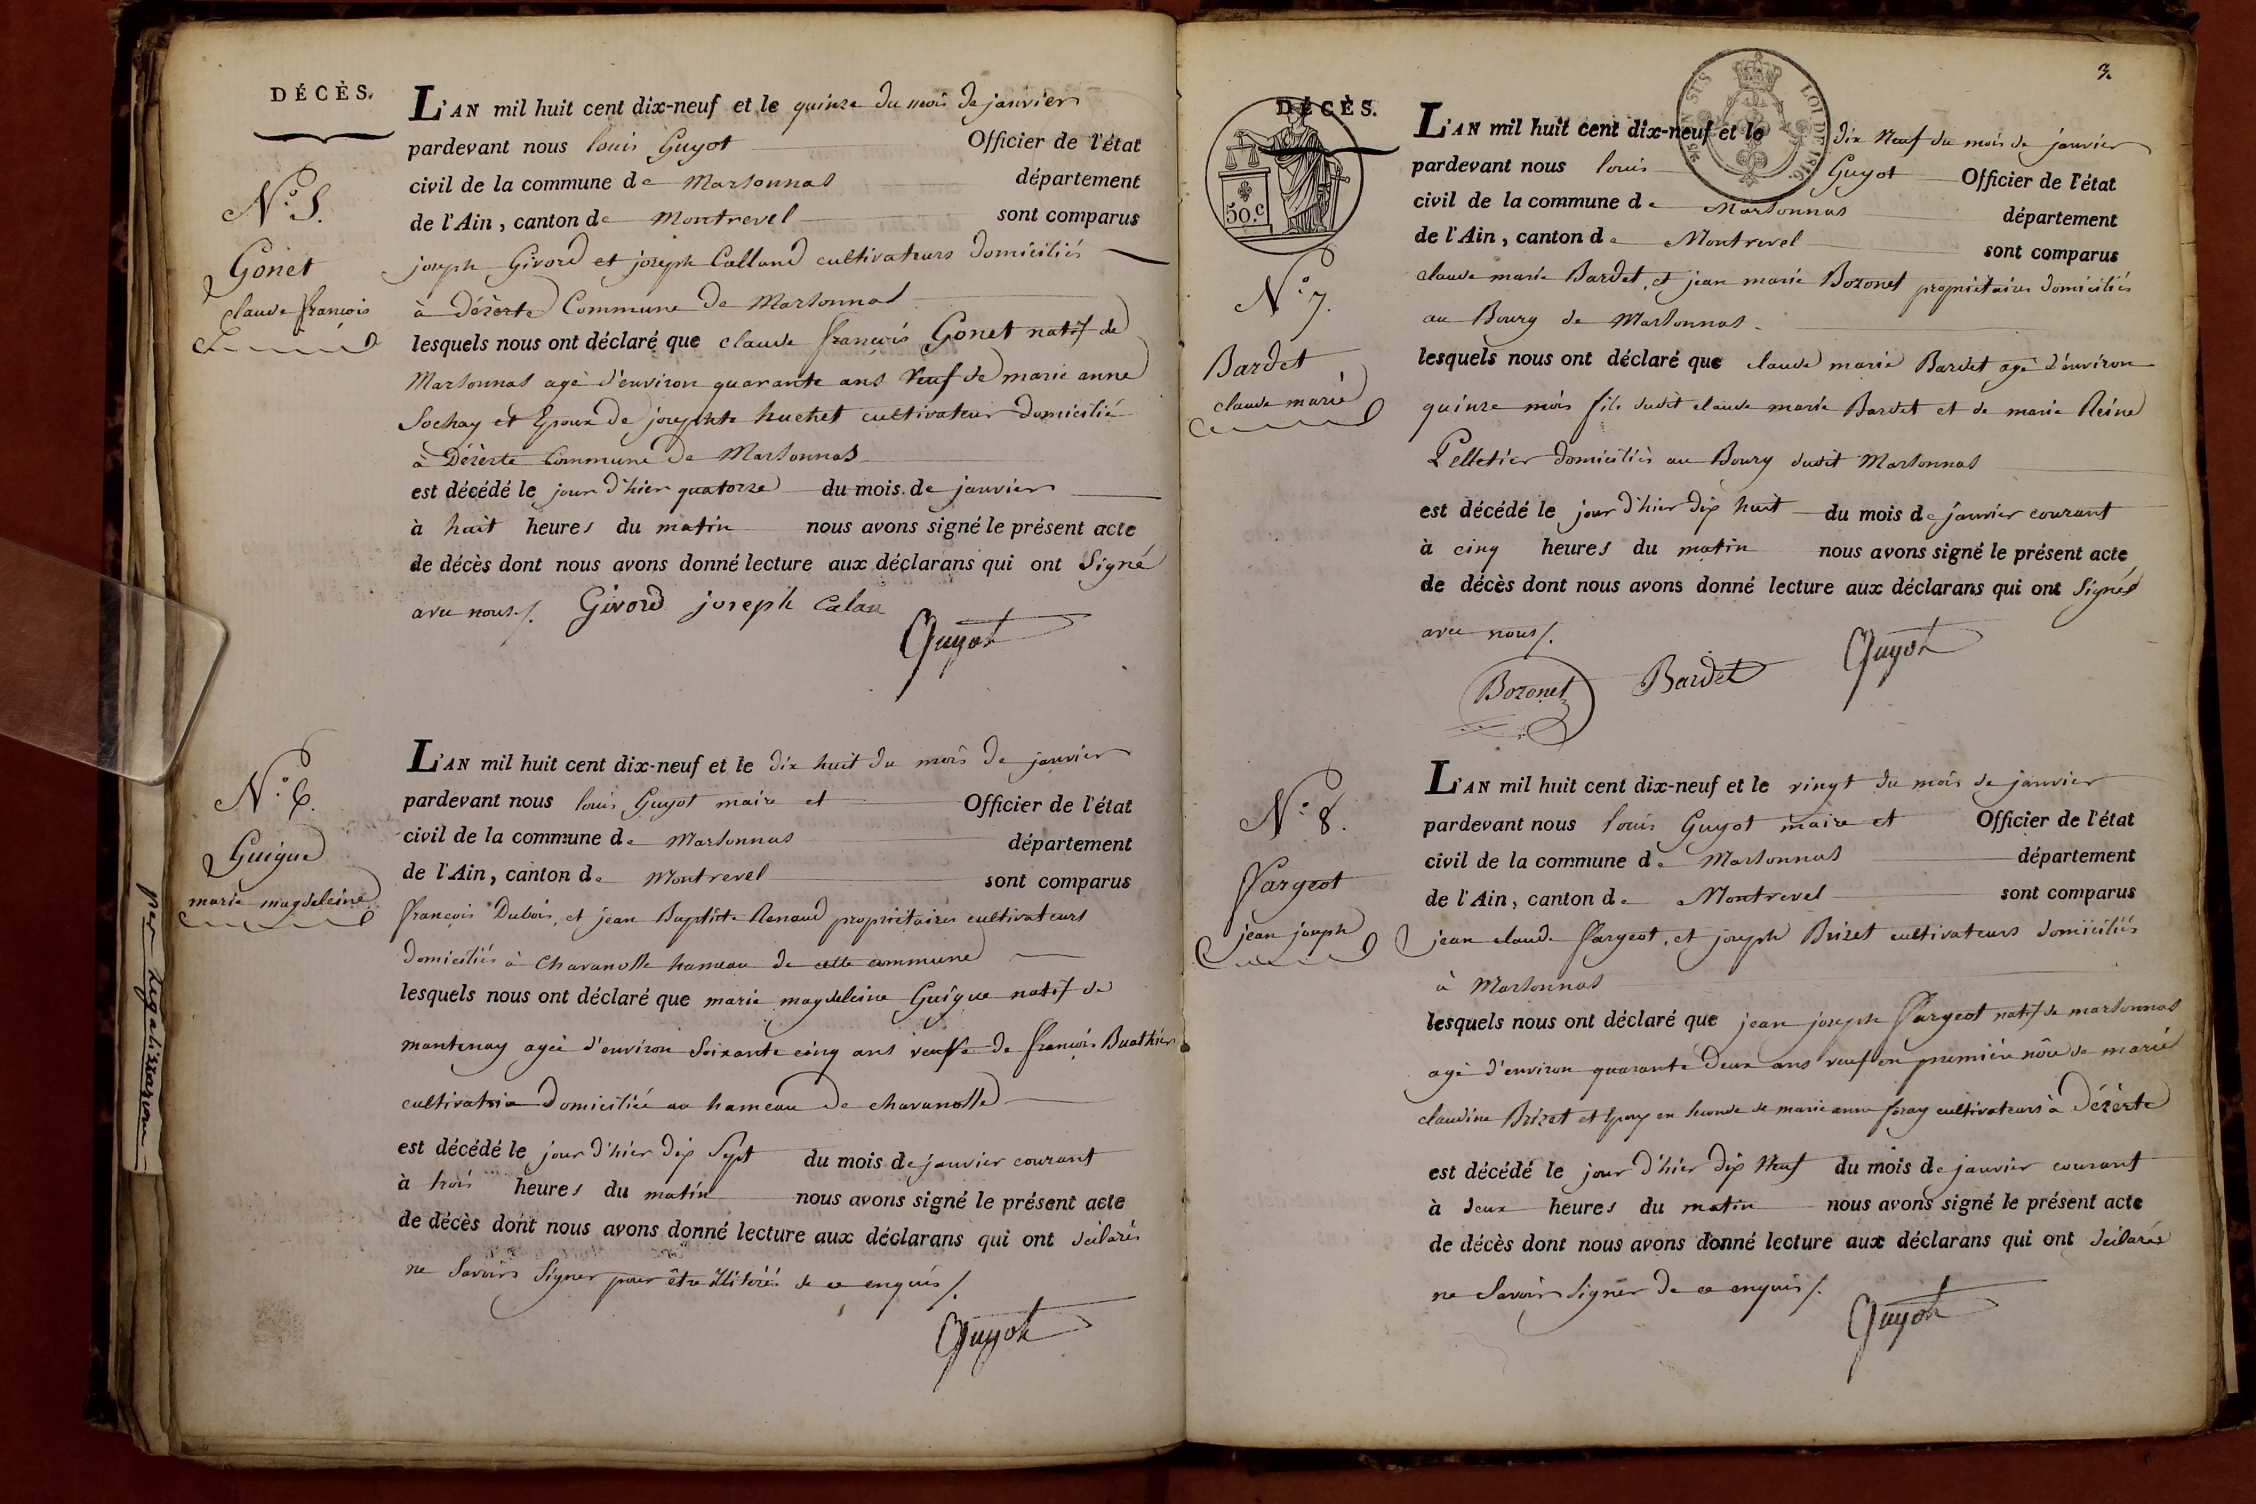 DÉCÈS.
N.° 5.
Gonet
claude françois
L'AN mil huit cent dix-neuf et le quinze du mois de janvier
pardevant nous louis Guyot Officier de l'état
civil de la commune de Marsonnas département
de l'Ain, canton de Montrevel sont comparus
joseph Givord et joseph Calland cultivateurs domiciliés
à Dézerte Commune de Marsonnas
lesquels nous ont déclaré que claude françois Gonet natif de
Marsonnas agé d'environ quarante ans Veuf de marie anne
Sochay et Epoux de josephte huchet cultivateur domicilié
à Dézerte Commune de Marsonnas
est décédé le jour d'hier quatorze du mois de janvier
à huit heures du matin nous avons signé le présent acte
de décès dont nous avons donné lecture aux déclarans qui ont Signé
avec nous /. Givord joseph Calan
Guyot
N.° 6.
Guigue
marie magdeleine
L'AN mil huit cent dix-neuf et le dix huit du mois de janvier
pardevant nous louis Guyot maire et Officier de l'état
civil de la commune de Marsonnas département
de l'Ain, canton de Montrevel sont comparus
françois Dubois, et jean Baptiste Renaud propriétaires cultivateurs
domiciliés à Chavanolle hameau de cette commune
lesquels nous ont déclaré que marie magdeleine Guigue natif de
mantenay agée d'environ Soixante cinq ans veufve de françois Buathier
cultivatrice domiciliée au hameau de chavanolle
est décédé le jour d'hier dix Sept du mois de janvier courant
à trois heures du matin nous avons signé le présent acte
de décès dont nous avons donné lecture aux déclarans qui ont déclarés
ne Savoirs Signer pour être Illitérés de ce enquis /.
Guyot
per legalizzazione
3.
DÉCÈS.
50.c
LOI DE 1816.
N.° 7.
Bardet
claude marie
L'AN mil huit cent dix-neuf et le dix Neuf du mois de janvier
pardevant nous louis Guyot Officier de l'état
civil de la commune de Marsonnas département
de l'Ain, canton de Montrevel sont comparus
claude marie Bardet, et jean marie Bozonet propriétaires domiciliés
au Bourg de Marsonnas
lesquels nous ont déclaré que claude marie Bardet agé d'environ
quinze mois fils dudit claude marie Bardet et de marie Reine
Pelletier domiciliés au Bourg dudit Marsonnas
est décédé le jour d'hier dix huit du mois de janvier courant
à cinq heures du matin nous avons signé le présent acte
de décès dont nous avons donné lecture aux déclarans qui ont Signés
avec nous /.
Bozonet Bardet Guyot
N.° 8.
Fargeot
jean joseph
L'AN mil huit cent dix-neuf et le vingt du mois de janvier
pardevant nous louis Guyot maire et Officier de l'état
civil de la commune de Marsonnas département
de l'Ain, canton de Montrevel sont comparus
jean claude Fargeot, et joseph Brizet cultivateurs domiciliés
à Marsonnas
lesquels nous ont déclaré que jean joseph Fargeot natif de marsonnas
agé d'environ quarante deux ans veuf en première nôce de marie
claudine Brizet et Epoux en seconde de marie anne foray cultivateurs à Dézerte
est décédé le jour d'hier dix Neuf du mois de janvier courant
à deux heures du matin nous avons signé le présent acte
de décès dont nous avons donné lecture aux déclarans qui ont déclarés
ne Savoir Signer de ce enquis /.
Guyot